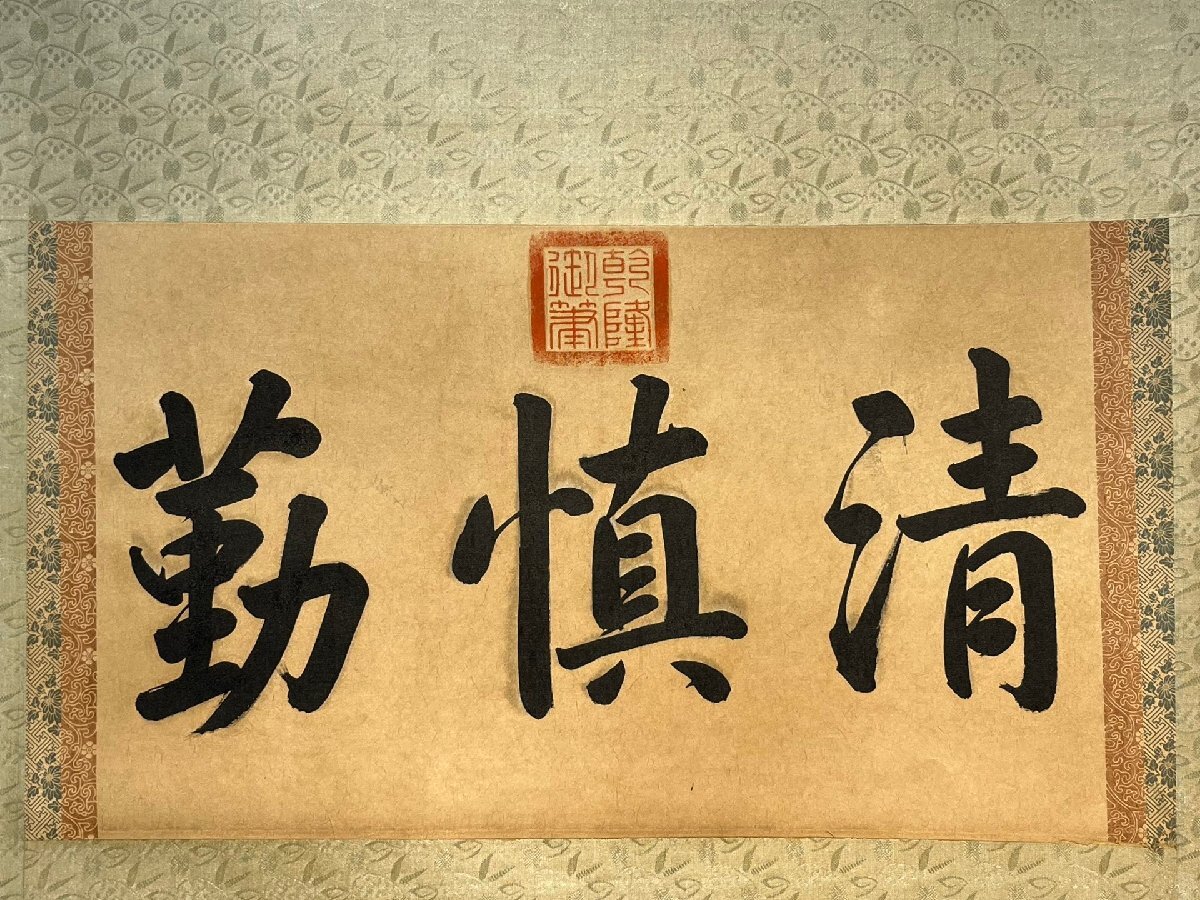 乾隆
御筆
清慎勤